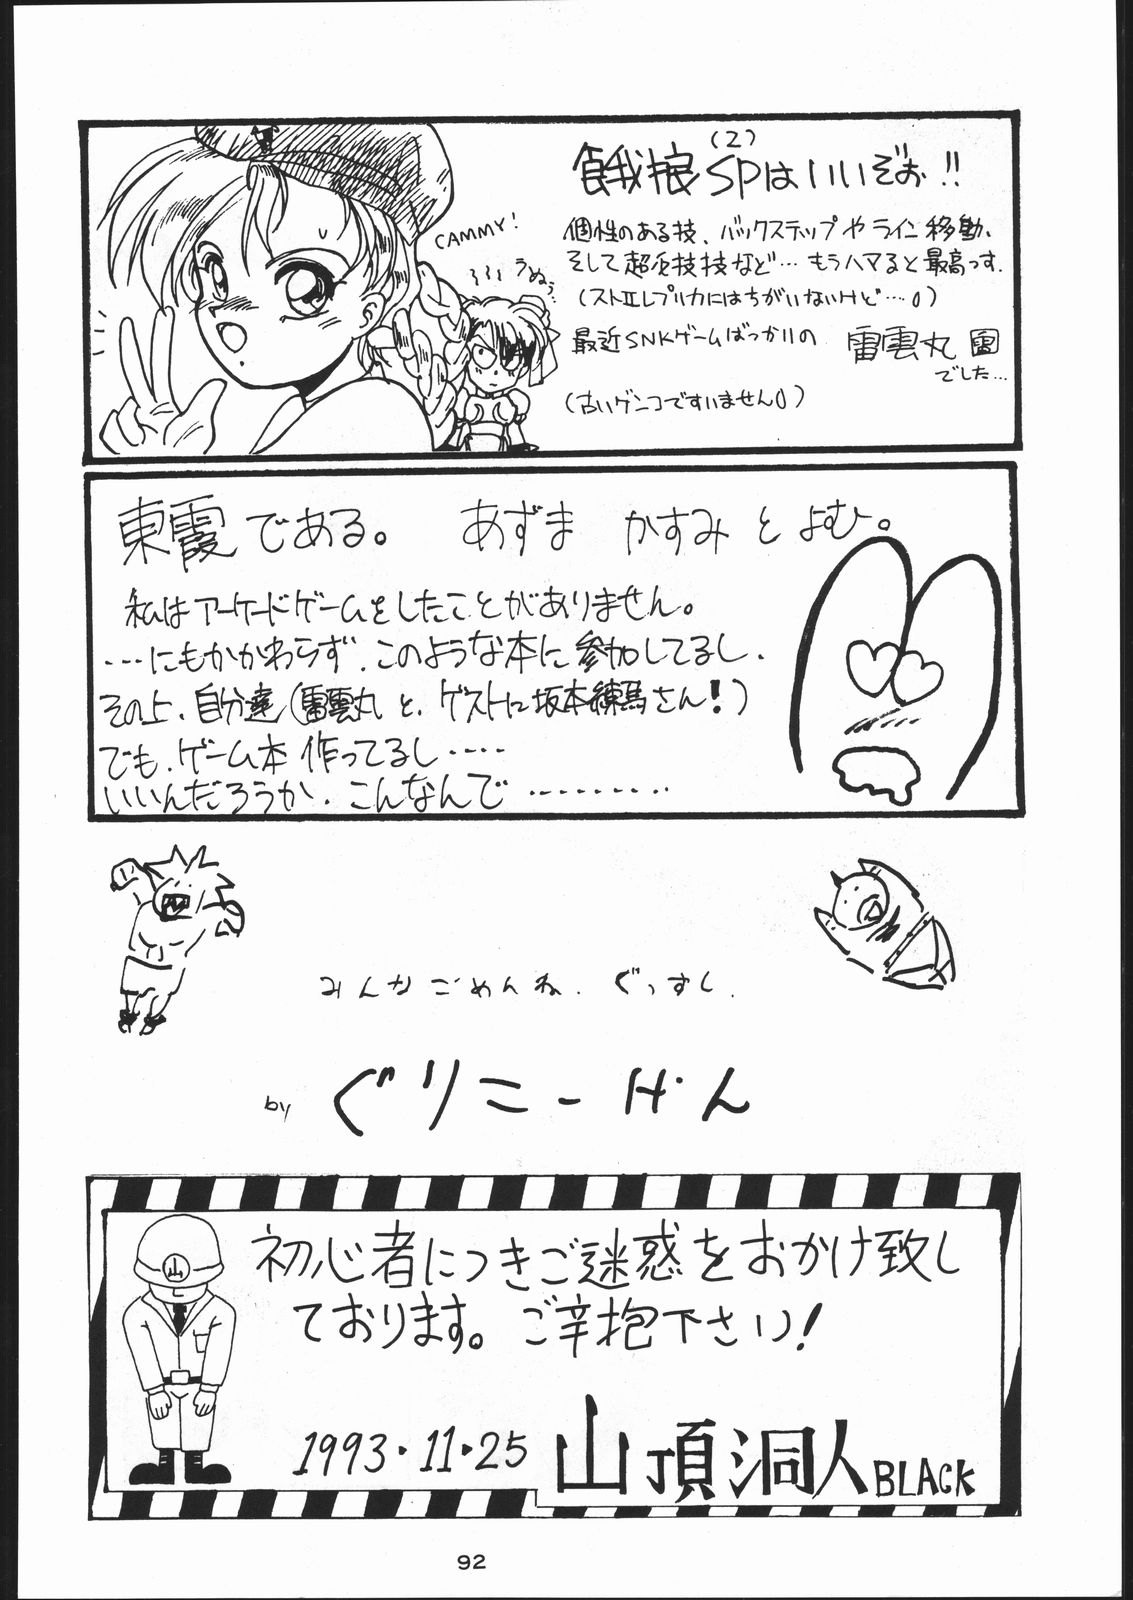 (2)
餓狼SPはいいぞぉ!!
CAMMY!
個性のある技、バックステップやライン移動、
そして超必技技など…もうハマると最高っす.
(ストⅡレプリカにはちがいないけど…。)
最近SNKゲームばっかりの 雷雲丸
でした…
(古いゲンコですいません。)
うぬぅ…
東霞である。 あずま かすみ とよむ。
私はアーケードゲームをしたことがありません。
…にもかかわらず、このような本に参加してるし、
その上、自分達(雷雲丸と、ゲストに坂本練馬さん!)
でも、ゲーム本作ってるし‥‥
いいんだろうか、こんなんで………
みんなごめんね. ぐっすし.
by ぐりこーげん
山
初心者につきご迷惑をおかけ致し
ております。ご辛抱下さい!
1993・11・25 山頂洞人BLACK
92